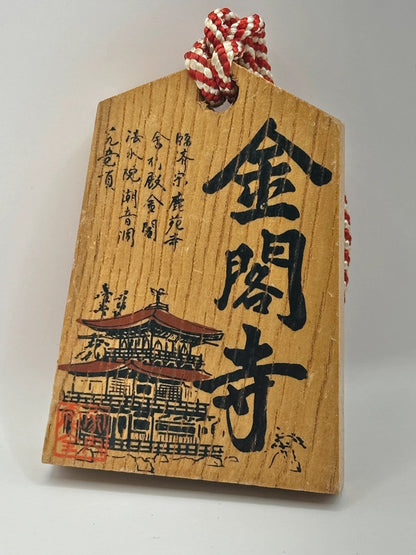 金閣寺
臨済宗鹿苑寺
舎利殿金閣
法水院潮音洞
究竟頂